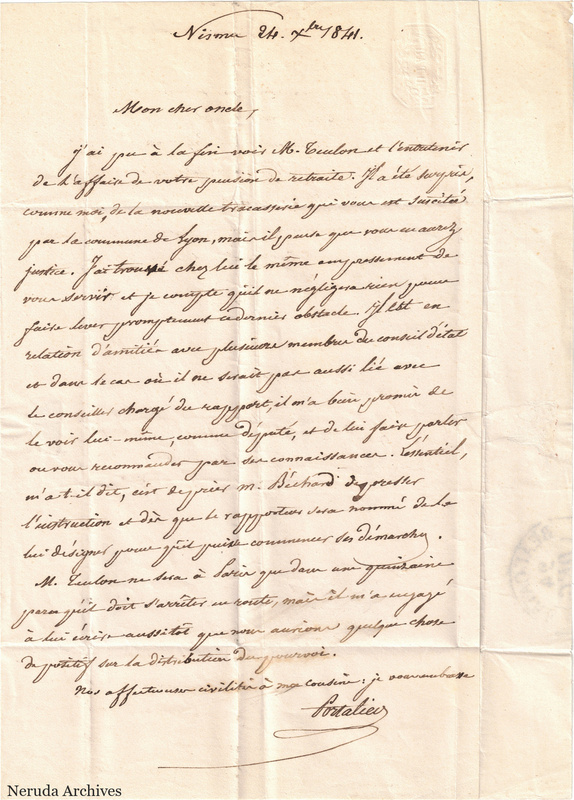 Nismes 24. Xbre 1841.
Mon cher oncle,
J'ai pu à la fin voir M. Teulon et l'entretenir
de l'affaire de votre pension de retraite. Il a été surpris,
comme moi, de la nouvelle tracasserie qui vous est suscitée
par la commune de Lyon, mais il pense que vous en aurez
justice. J'ai trouvé chez lui le même empressement de
vous servir et je compte qu'il ne négligera rien pour
faire lever promptement ce dernier obstacle. Il est en
relation d'amitié avec plusieurs membres du conseil d'état
et dans le cas où il ne serait pas aussi lié avec
le conseiller chargé du rapport, il m'a bien promis de
le voir lui-même comme député, et de lui faire parler
ou vous recommander par ses connaissances. L'essentiel,
m'a-t-il dit, c'est de prier M. Béchard de presser
l'instruction et dès que le rapporteur sera nommé de le
lui désigner pour qu'il puisse commencer ses démarches.
M. Teulon ne sera à Paris que dans une quinzaine
parce qu'il doit s'arrêter en route, mais il m'a engagé
à lui écrire aussitôt que nous aurions quelque chose
de positif sur la distribution du pourvoi.
Nos affectueuses civilités à ma cousine: je vous embrasse
Neruda Archives